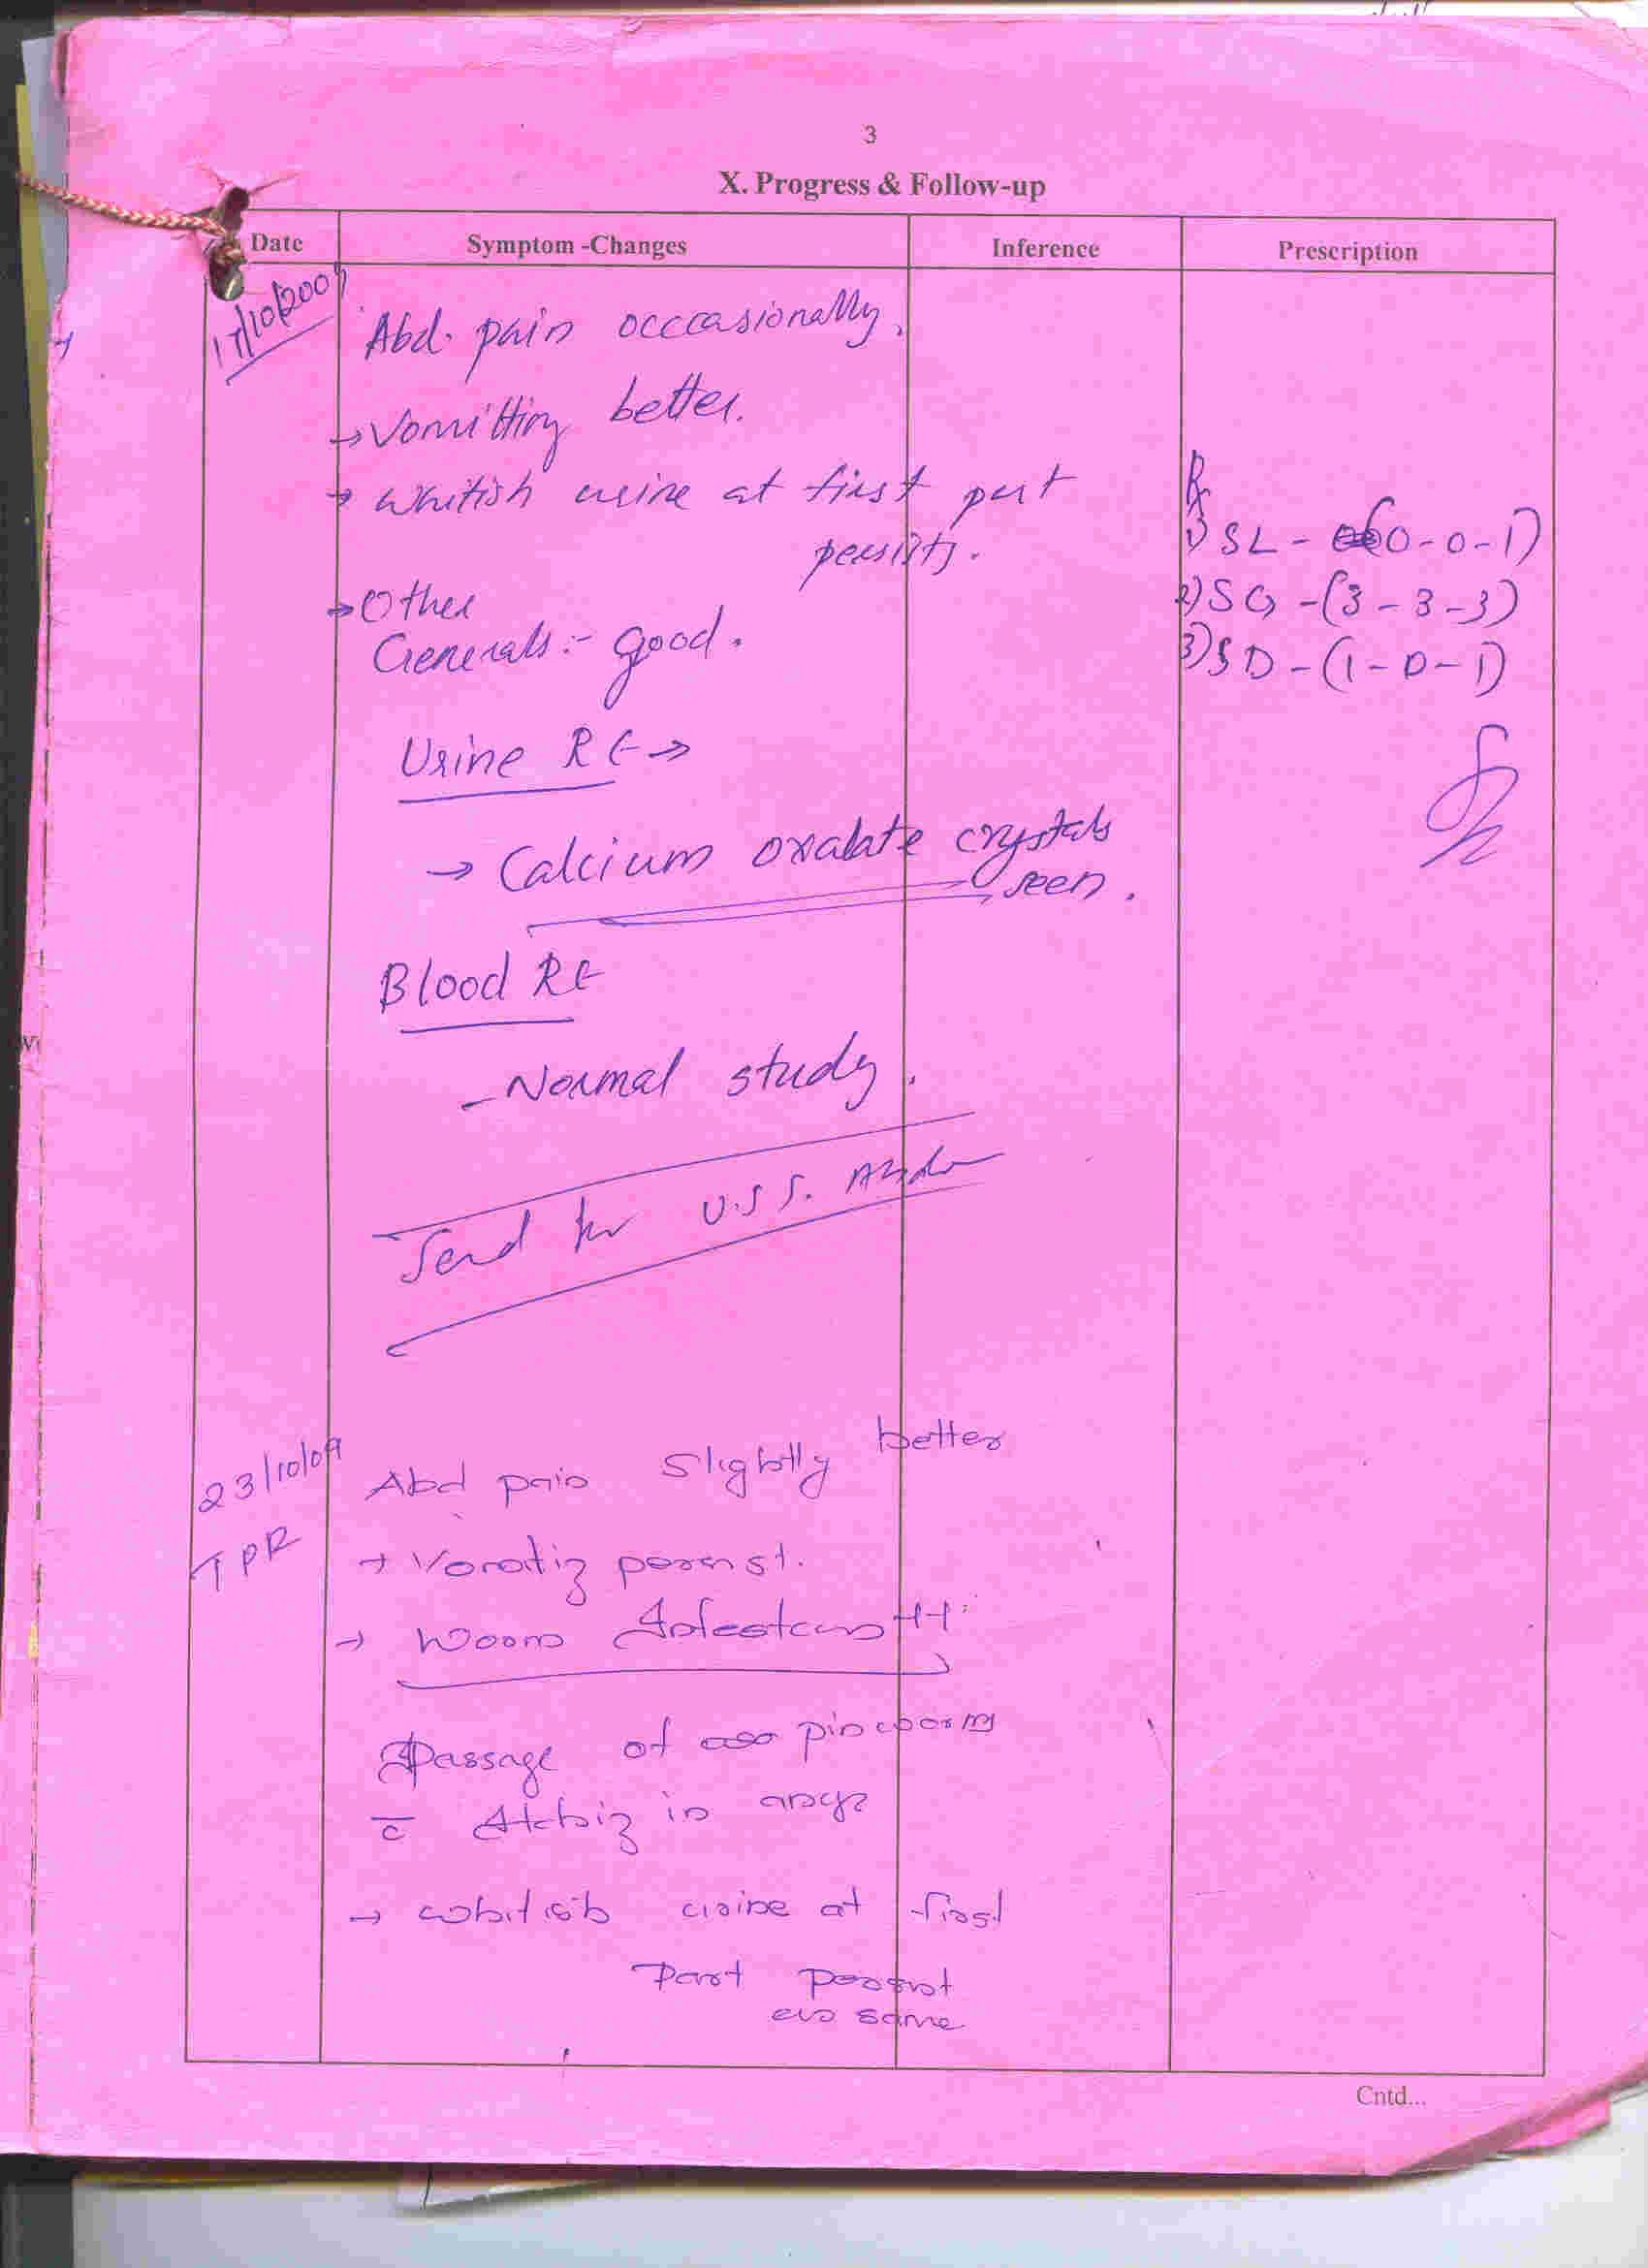 3
X. Progress & Follow-up
Date Symptom -Changes Inference Prescription
17/10/2009 Abd. pain occcasionally.
→ Vomitting better.
→ Whitish urine at first part
persists.
→ Other
Generals :- good.
Rx
1) SL - (0-0-1)
2) SG - (3-3-3)
3) SD - (1-0-1)
Urine RE →
→ Calcium oxalate crystals
seen.
Blood RE
- Normal study.
Send for U.S.S. Abdo
23/10/09 Abd pain slightly better
TPR
→ Vomiting persist.
→ Worm Infestation ++
Passage of pinworms
c̅ Itching in anus
→ whitish urine at first
Part persist
as same
Cntd...